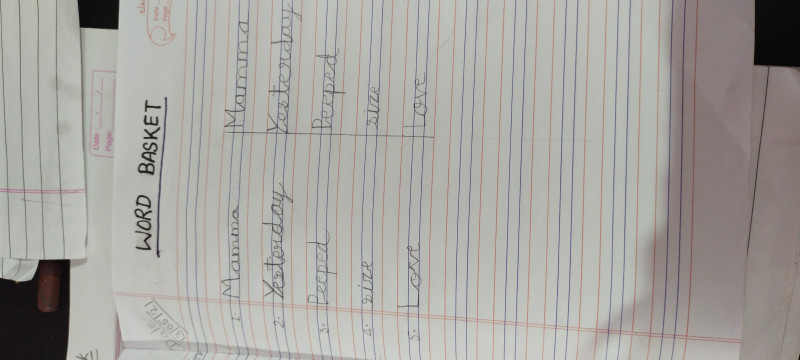 WORD BASKET
1. Mamma Mamma
2. Yesterday Yesterday
3. Peeped Peeped
4. size size
5. Love Love
Date
Page
Date
Page